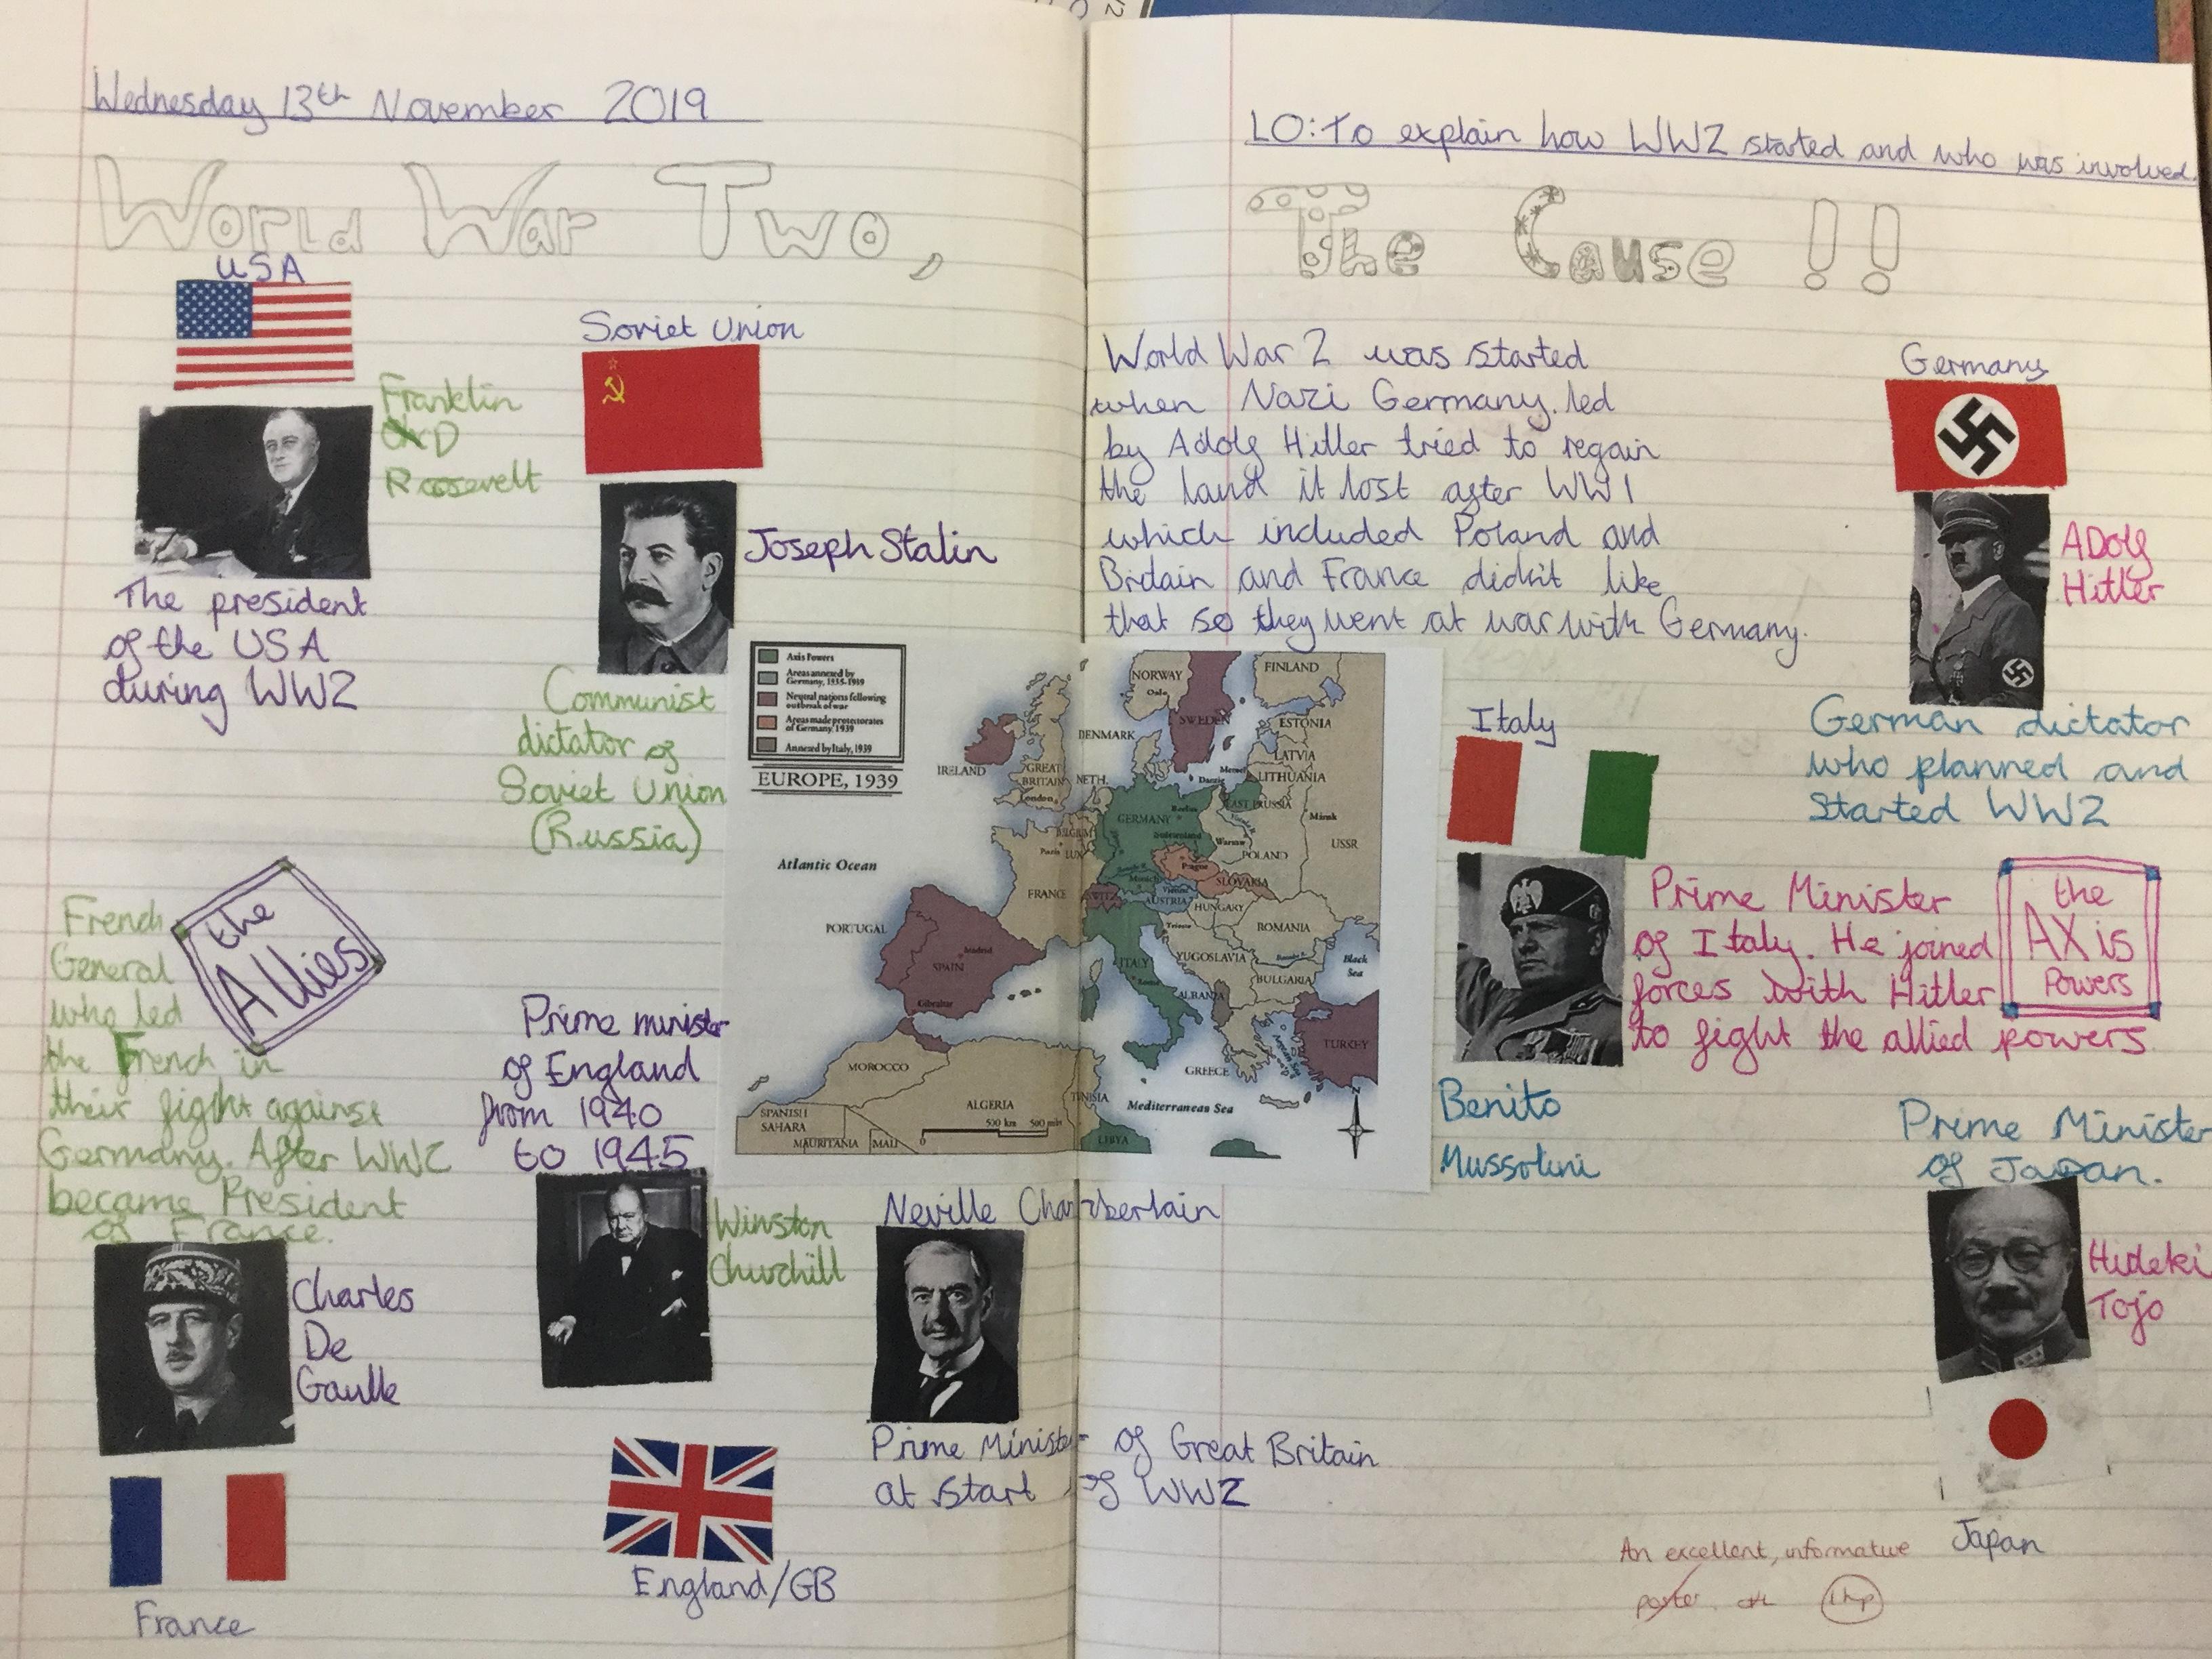 Wednesday 13th November 2019
World War Two,
USA
Franklin
D
Roosevelt
The president
of the USA
during WW2
Soviet Union
Joseph Stalin
Communist
dictator of
Soviet Union
(Russia)
the
Allies
French
General
who led
the French in
their fight against
Germany. After WW2
became President
of France.
Charles
De
Gaulle
France
Prime minister
of England
from 1940
to 1945
Winston
Churchill
England/GB
Neville Chamberlain
Prime Minister of Great Britain
at start of WW2
Axis Powers
Areas annexed by
Germany, 1935-1939
Neutral nations following
outbreak of war
Areas made protectorates
of Germany, 1939
Annexed by Italy, 1939
EUROPE, 1939
NORWAY
Oslo
FINLAND
SWEDEN
ESTONIA
LATVIA
LITHUANIA
DENMARK
Memel
Danzig
EAST PRUSSIA
IRELAND
GREAT
BRITAIN
London
NETH.
Berlin
GERMANY
Minsk
USSR
BELGIUM
LUX
Paris
Sudetenland
Warsaw
POLAND
Prague
SLOVAKIA
Atlantic Ocean
FRANCE
Munich
Vienna
SWITZ
AUSTRIA
HUNGARY
ROMANIA
Trieste
PORTUGAL
Madrid
SPAIN
Gibraltar
ITALY
Rome
YUGOSLAVIA
BULGARIA
Black
Sea
ALBANIA
TURKEY
GREECE
Aegean Sea
MOROCCO
ALGERIA
TUNISIA
Mediterranean Sea
SPANISH
SAHARA
MAURITANIA
MALI
0
500 km
500 miles
LIBYA
N
LO: To explain how WW2 started and who was involved.
The Cause !!
World War 2 was started
when Nazi Germany. led
by Adolf Hitler tried to regain
the land it lost after WW1
which included Poland and
Britain and France didn't like
that so they went at war with Germany.
Germany
ADolf
Hitler
German dictator
who planned and
Started WW2
Italy
Prime Minister
of Italy. He joined
forces with Hitler
to fight the allied powers
the
AXis
Powers
Benito
Mussolini
Prime Minister
of Japan.
Hideki
Tojo
Japan
An excellent, informative
poster.
1hp